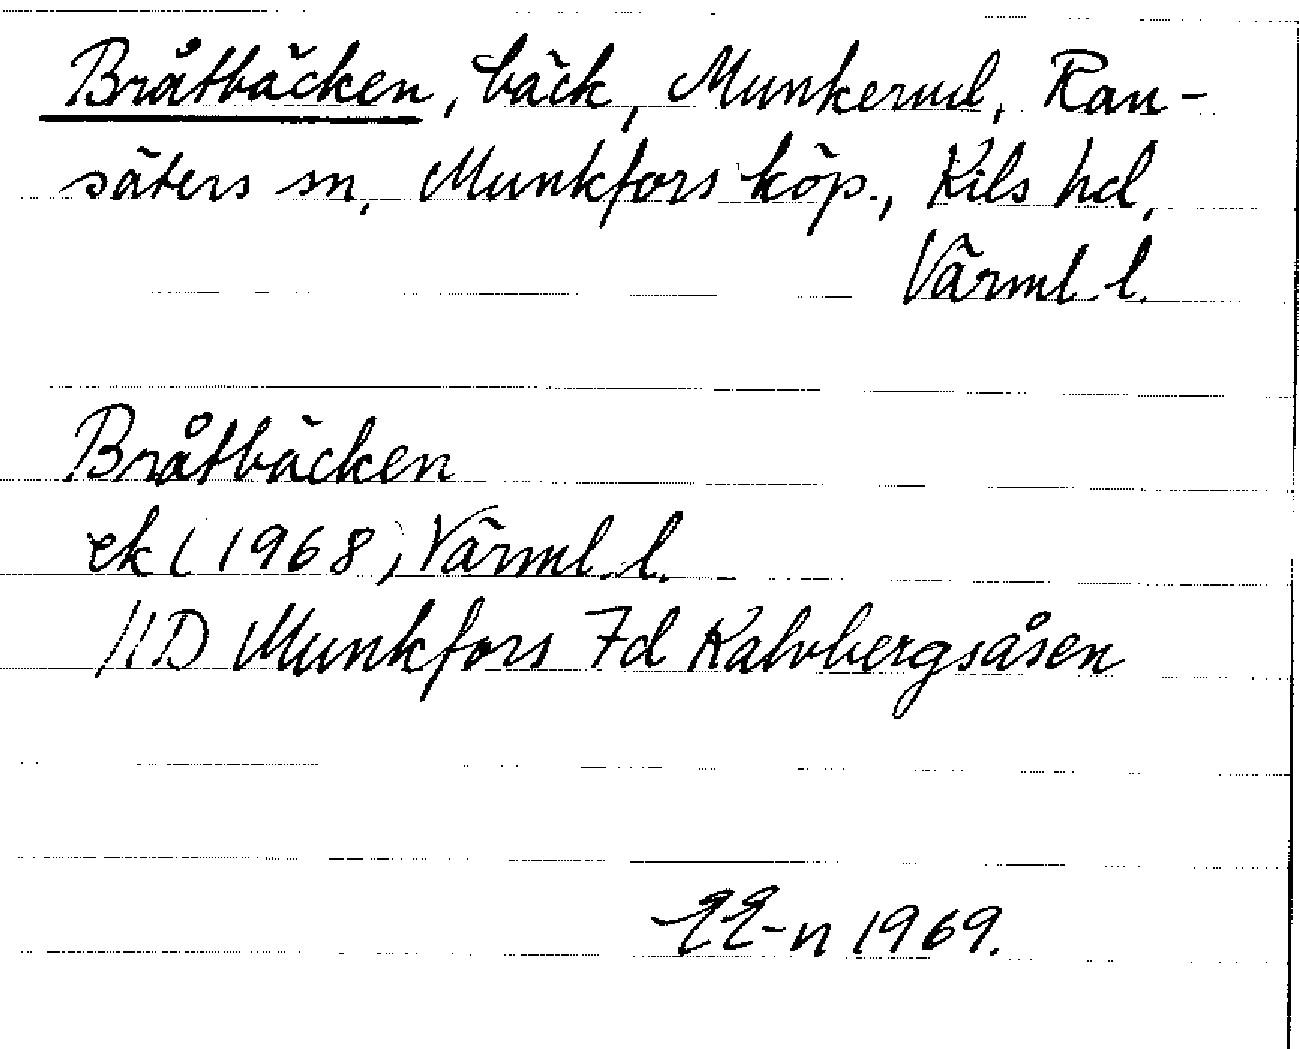 Bråtbäcken, bäck, Munkerud, Ran-
säters sn, Munkfors köp., Kils hd,
Värml. l.
Bråtbäcken
ek (1968) Värml. l.
11D Munkfors 7d Kalvbergsåsen
EE-n 1969.